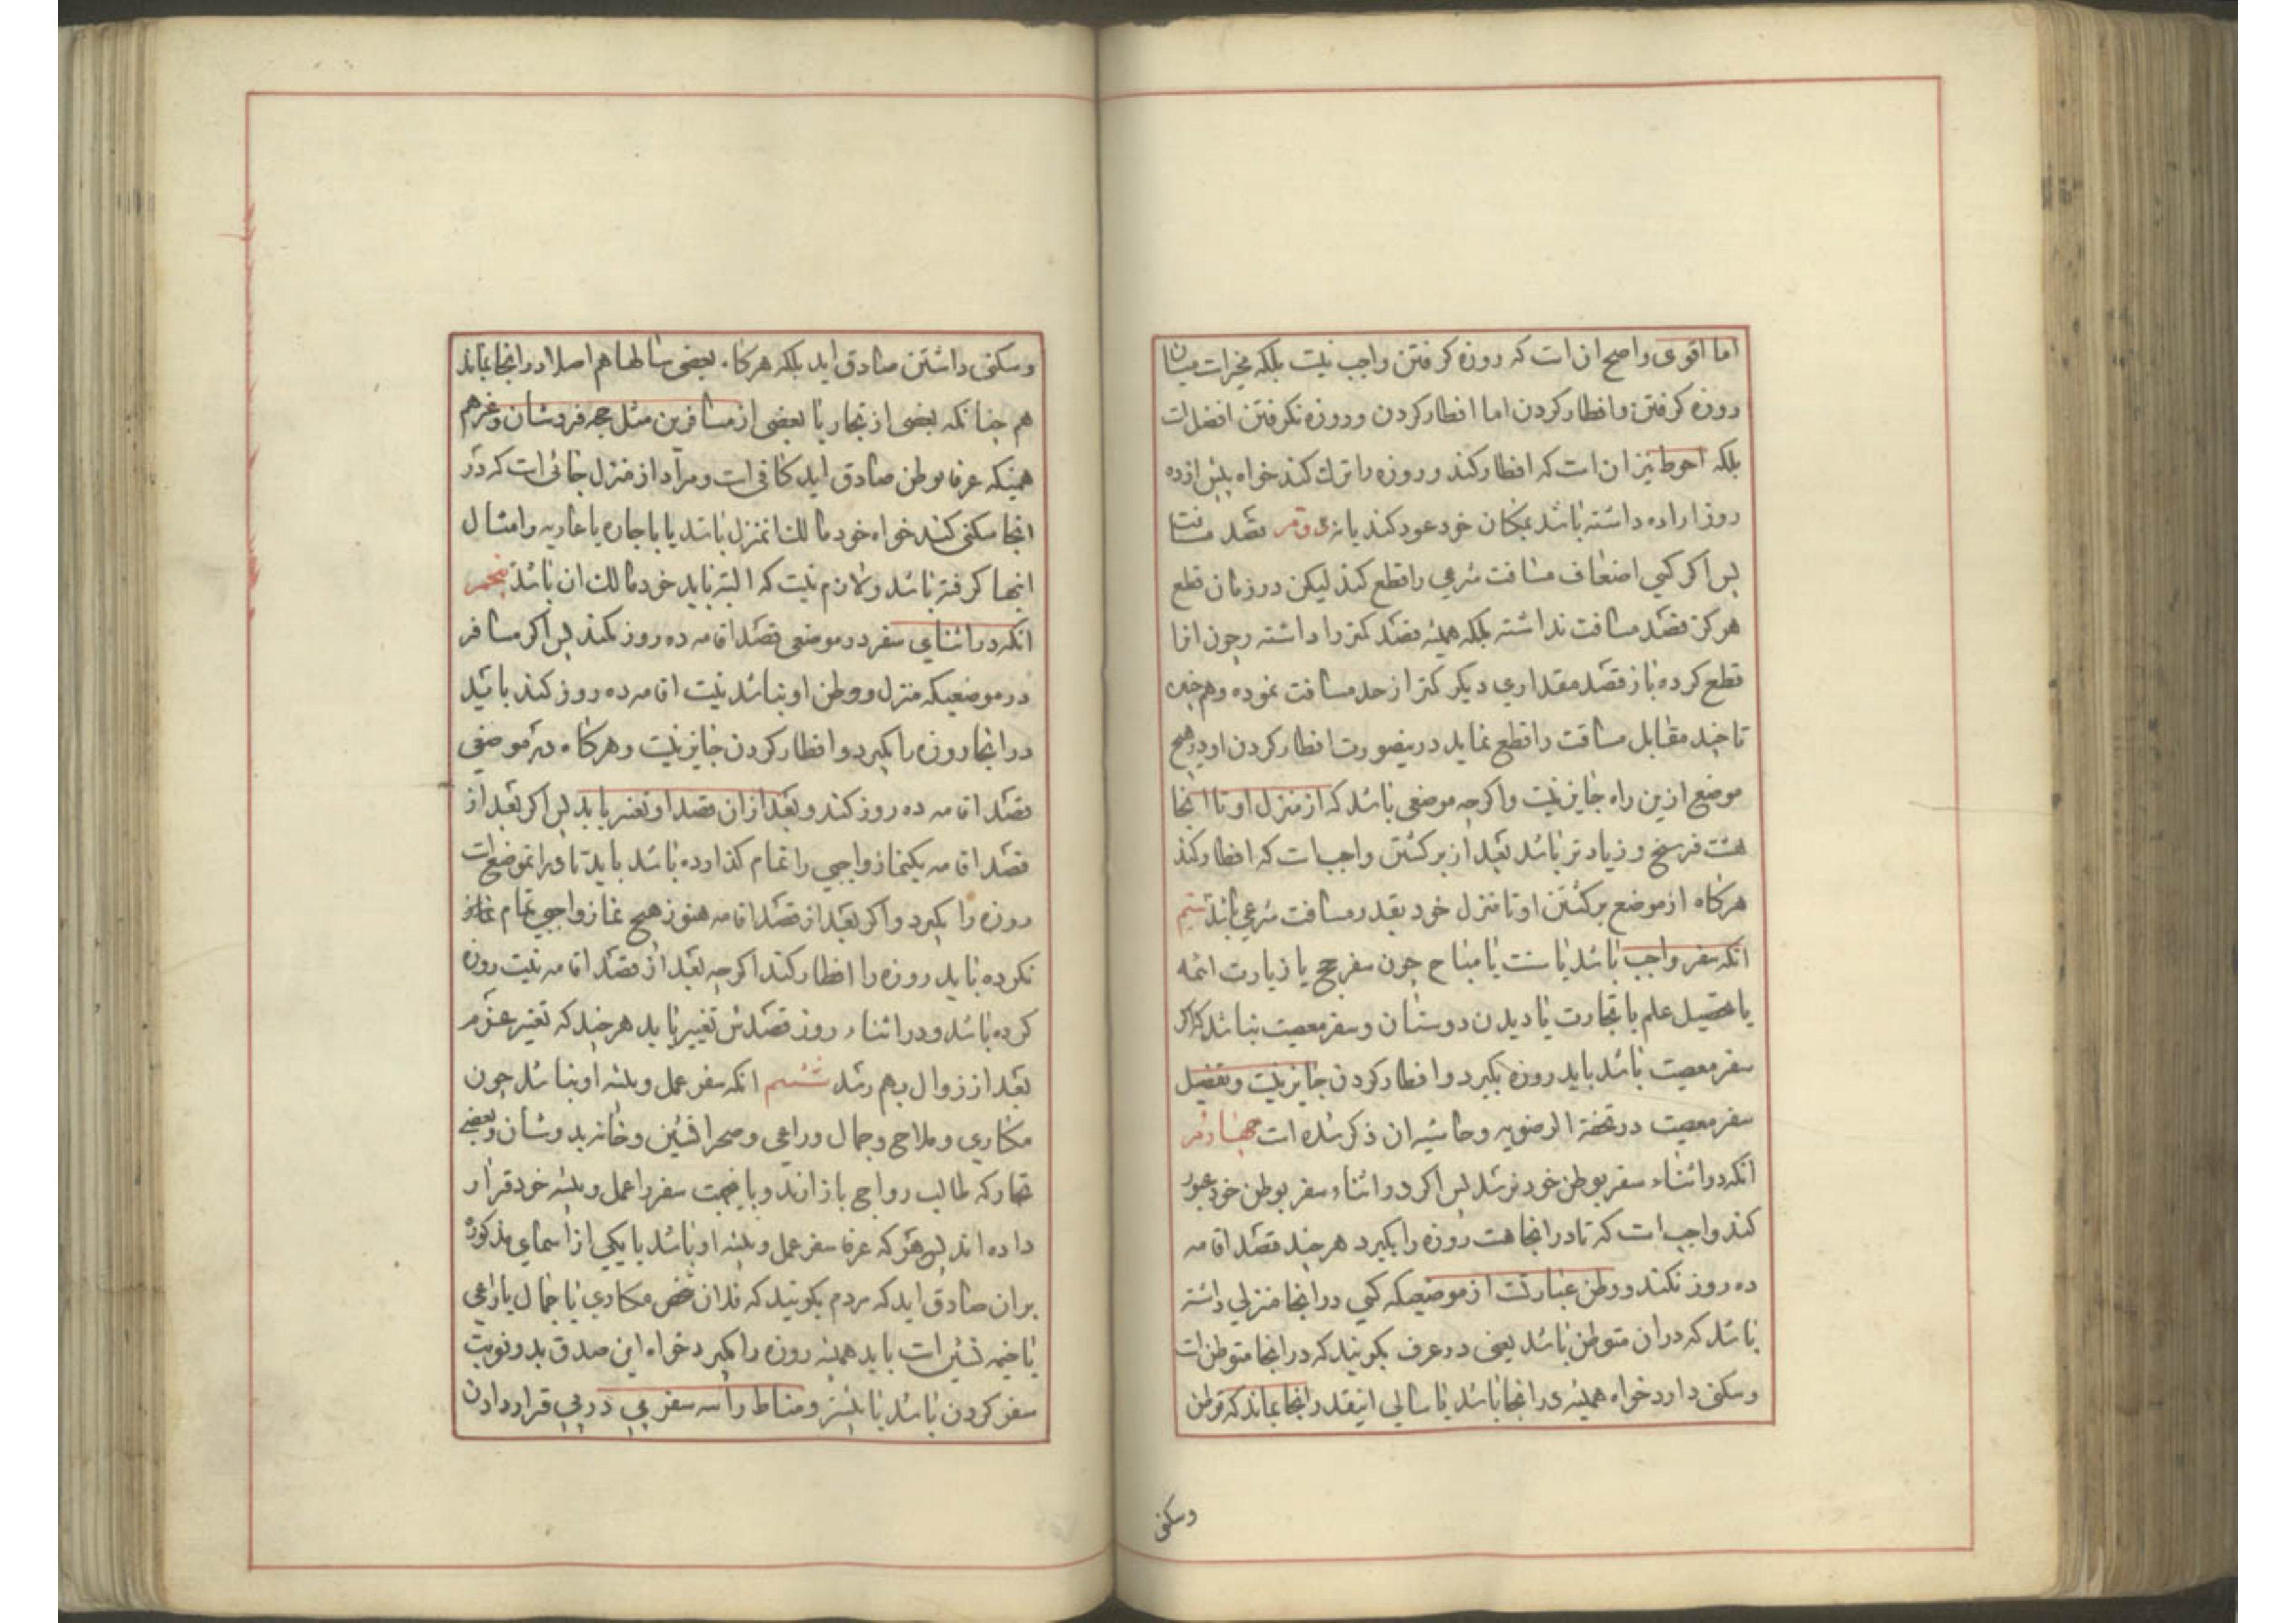 اما اقوی واصح ان ات که روزه کرفتن واجب نیت بلکه مخیرات میان
روزه کرفتن وافطار کردن اما افطار کردن وروزه نکرفتن افضل ات
بلکه احوط نیز ان ات که افطار کند وروزه را ترك کند خواه پیش از ده
روز اراده داشته باشد بمکان خود عود کند یا نه دوّم قصد مسافت
پس اکر کسی اضعاف مسافت شرعی را قطع کند لیکن در زمان قطع
هرکز قصد مسافت نداشته بلکه همیشه قصد کمتر را داشته وچون انرا
قطع کرده باز قصد مقداری دیکر کمتر از حد مسافت نموده وهم چنین
تا چند مقابل مسافت را قطع نماید درینصورت افطار کردن او در هیچ
موضع ازین راه جایز نیت واکرچه موضعی باشد که از منزل او تا انجا
هشت فرسخ وزیادتر باشد بعد از برکشتن واجب ات که افطار کند
هرکاه از موضع برکشتن او تا منزل خود بقدر مسافت شرعی باشد سیم
انکه سفر واجب باشد یا سنت یا مباح چون سفر حج یا زیارت ائمه
یا تحصیل علم یا تجارت یا دیدن دوستان وسفر معصیت نباشد که اکر
سفر معصیت باشد باید روزه بکیرد وافطار کردن جایز نیت وتفصیل
سفر معصیت در تحفة الرضویه وحاشیه ان ذکر شده ات چهارم
انکه در اثناء سفر بوطن خود نرسد پس اکر در اثناء سفر بوطن خود عبور
کند واجب ات که تا در انجا هت روزه را بکیرد هرچند قصد اقامه
ده روز نکند ووطن عبارتت از موضعیکه کسی در انجا منزلی داشته
باشد که در ان متوطن باشد یعنی در عرف بکویند که در انجا متوطن ات
وسکنی دارد خواه همیشه در انجا باشد یا سالی اینقدر در انجا بماند که توطن
وسکنی
وسکنی داشتن صادق اید بلکه هرکاه بعضی سالها هم اصلا در انجا نماند
هم چنانکه بعضی از تجار یا بعضی از مسافرین مثل حجه فروشان وغیرهم
همینکه عرفا موطن صادق اید کافی ات ومراد از منزل جائی ات که در
انجا سکنی کند خواه خود مالك انمنزل باشد یا باجاره یا عاریه وامثال
اینها کرفته باشد ولازم نیت که البته باید خود مالك ان باشد پنجم
انکه در اثنای سفر در موضعی قصد اقامه ده روز نکند پس اکر مسافر
در موضعیکه منزل ووطن او نباشد نیت اقامه ده روز کند باید
در انجا روزه را بکیرد وافطار کردن جایز نیت وهرکاه در موضعی
قصد اقامه ده روز کند وبعد از ان قصد او تغییر یابد پس اکر بعد از
قصد اقامه یکنماز واجبی را تمام کذارده باشد باید تا در انموضع ات
روزه را بکیرد واکر بعد از قصد اقامه هنوز هیچ نماز واجبی تمام نماز
نکرده باید روزه را افطار کند اکرچه بعد از قصد اقامه نیت روزه
کرده باشد ودر اثناء روز قصدش تغییر یابد هرچند که تغییر عزم
بعد از زوال بهم رسد ششم انکه سفر عمل وپیشه او نباشد چون
مکاری وملاح وجمال وراعی وصحرا نشین وخانه بدوشان وبعضی
تجار که طالب رواج بازارند وباینجهت سفر را عمل وپیشه خود قرار
داده اند پس هر که عرفا سفر عمل وپیشه او باشد یا یکی از اسمای مذکوره
بران صادق اید که مردم بکویند که فلان شخص مکاری یا جمال یا راعی
یا خیمه نشین ات باید همیشه روزه را بکیرد خواه این صدق بدو نوبت
سفر کردن باشد یا بیشتر ومناط را سه سفر پی در پی قرار دادن